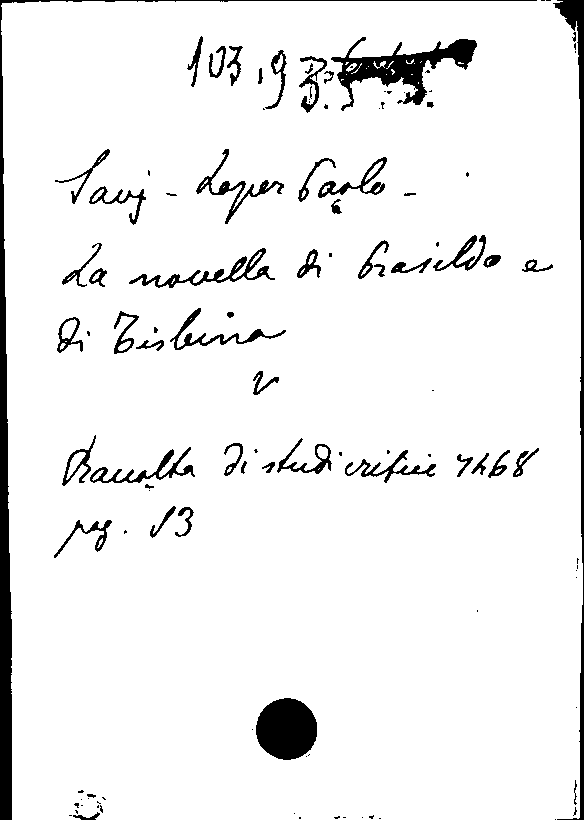 103.9 B.
Savj-Lopez Paolo -
La novella di Prasildo e
di Tisbina
v
Raccolta di studi critici 7468
pag. 53